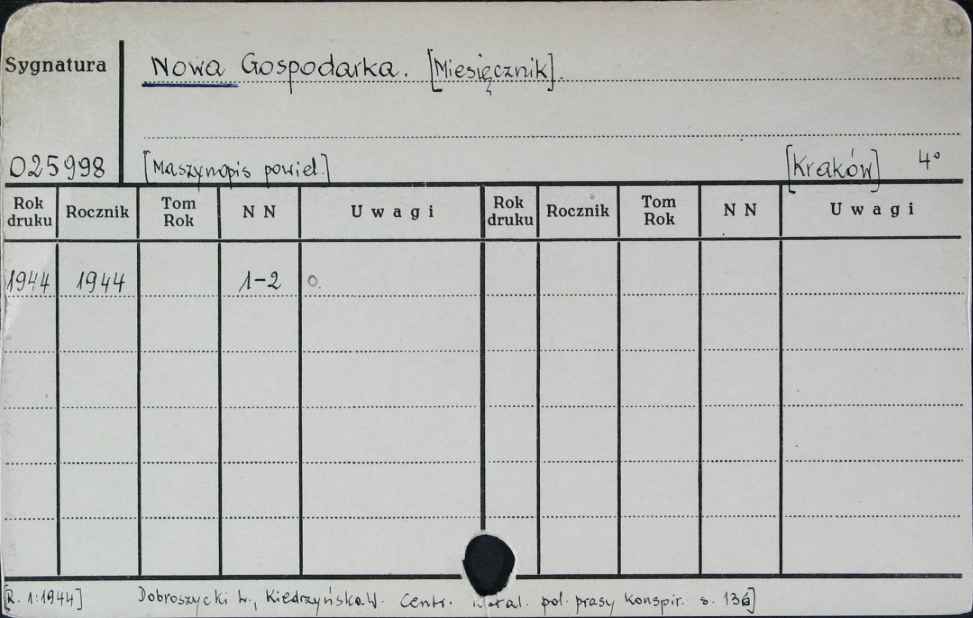 Sygnatura Nowa Gospodarka. [Miesięcznik].
025998 [Maszynopis powiel.] [Kraków] 4°
Rok druku Rocznik Tom Rok N N Uwagi Rok druku Rocznik Tom Rok N N Uwagi
1944 1944 1-2 o.
[R. 1:1944] Dobroszycki L., Kiedrzyńska W. Centr. pol. prasy konspir. s. 136]